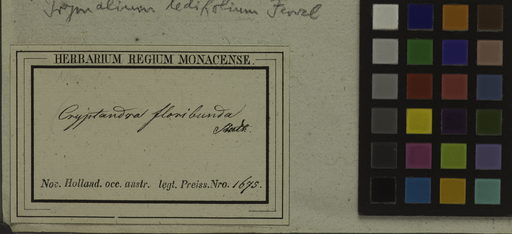 Trymalium ledifolium Fenzl
HERBARIUM REGIUM MONACENSE.
Cryptandra floribunda
Steud.
Nov. Holland. occ. austr. legt. Preiss. Nro. 1675.